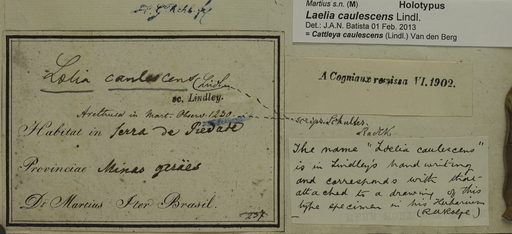 Martius s.n. (M) Holotypus
Laelia caulescens Lindl.
Det.: J.A.N. Batista 01 Feb. 2013
= Cattleya caulescens (Lindl.) Van den Berg
A Cogniaux revissa VI. 1902.
Lœlia caulescens Lindl.
sc. Lindley.
Arethusa in Mart. Observ. 1230
Habitat in Serra de Piedade
Provinciae Minas geräes
Dr Martius Iter Brasil.
237.
scripsit Schultes.
The name "Lœlia caulescens"
is in Lindley's handwriting
and corresponds with that
attached to a drawing of this
type specimen in his Herbarium
(R.A. Rolfe)